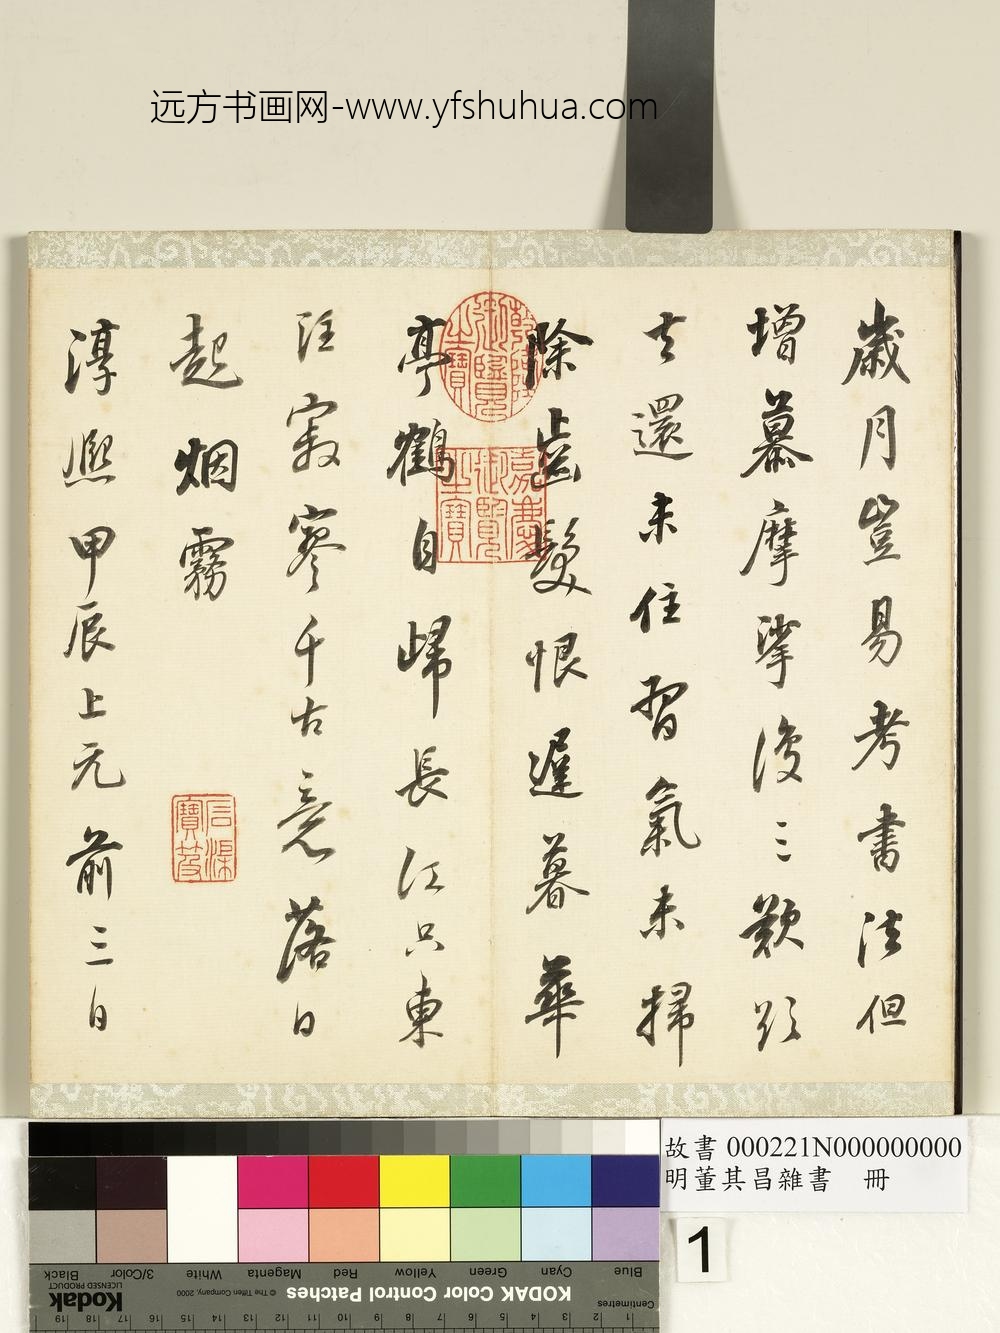 远方书画网-www.yfshuhua.com
歲月豈易考書法但
增慕摩挲後三歎欲
去還未住習氣未掃
除齒髮恨遲暮華
亭鶴自歸長江只東
注寂寥千古意落日
起烟霧
淳熙甲辰上元前三日
乾隆御覽之寶
嘉慶御覽之寶
石渠寶笈
故書 000221N000000000
明董其昌雜書 冊
1
Blue Cyan Green Yellow Red Magenta White 3/Color Black
KODAK Color Control Patches
© The Tiffen Company, 2000
Kodak
LICENSED PRODUCT
Centimetres
1 2 3 4 5 6 7 8 9 10 11 12 13 14 15 16 17 18 19